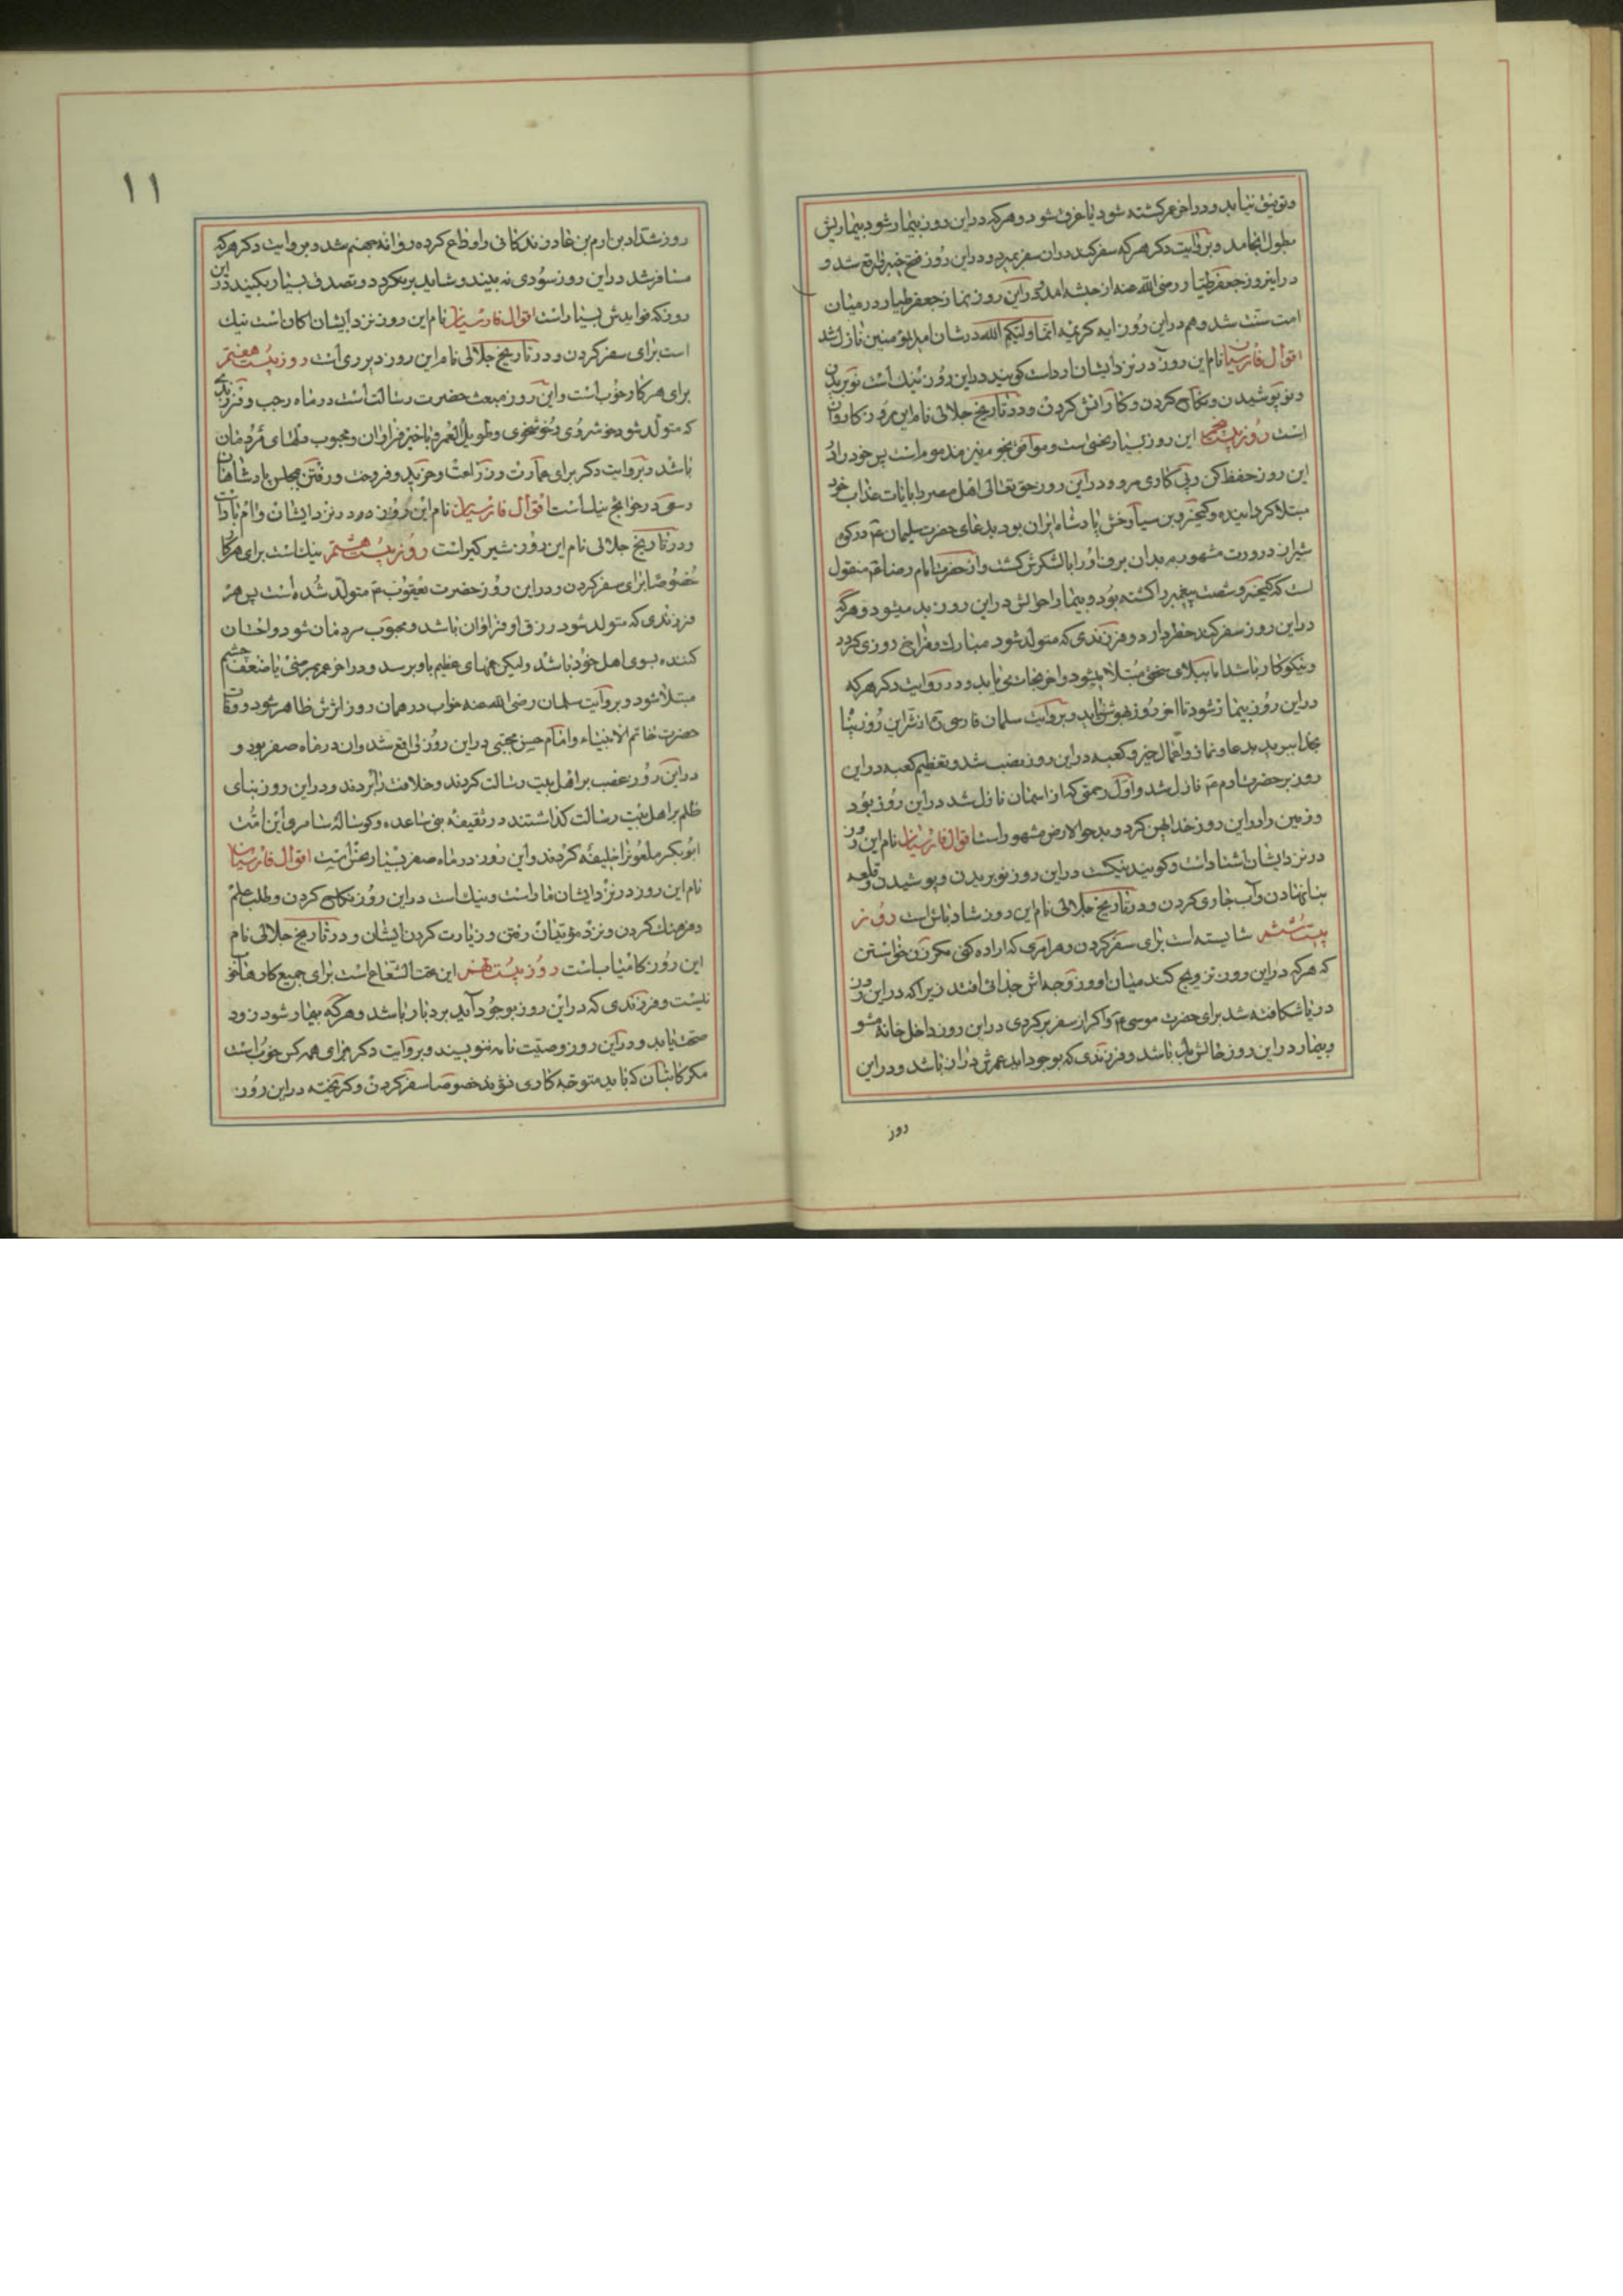 و توفیق نیابد و در اخر عمر کشته شود یا غرق شود و هر که در این روز بیمار شود بیماریش
بطول انجامد و بروایت دکر هر که سفر کند در ان سفر بمیرد و در این روز فتح خیبر واقع شد و
در اینروز جعفر طیار رضی الله عنه از حبشه امد و در این روز نماز جعفر طیار در میان
امت سنت شد و هم در این روز ایه کریمه انما ولیکم الله در شان امیر المؤمنین نازل شد
اقوال فارسیان نام این روز در نزد ایشان ارداست کویند در این روز نیک است نو بریدن
و نو پوشیدن و نکاح کردن و کار اتش کردن و در تاریخ جلالی نام این روز کاروان
است روز بیست پنجم این روز بسیار نحس است و موافق نجوم نیز مذموم است پس خود را در
این روز حفظ کن و پی کاری مرو و در این روز حق تعالی اهل مصر را بایات عذاب خود
مبتلا کردانیده و کیخسرو بن سیاوخش پادشاه ایران بود بدعای حضرت سلیمان ع در کوه
شیراز در ورت مشهور بمیدان برف او را با لشکرش کشت و از حضرت امام رضا ع منقول
است که کیخسرو شصت پیغمبر را کشته بود و بیمار احوالش در این روز بد میشود و هر که
در این روز سفر کند خطر دارد و فرزندی که متولد شود مبارک و فراخ روزی کردد
و نیکو کار باشد اما ببلای سختی مبتلا میشود و اخر نجات می یابد و در روایت دکر هر که
در این روز بیمار شود تا اخر روز بهوش نیاید و بروایت سلمان فارسی ره از شر این روز پناه
بخدا ببرید بدعا و نماز و اعمال خیر و کعبه در این روز نصب شد و تعظیم کعبه در این
روز بر حضرت ادم ع نازل شد و اول رحمتی که از اسمان نازل شد در این روز بود
و زمین را در این روز خدا پهن کرد و بدحو الارض مشهور است اقوال فارسیان نام این روز
در نزد ایشان اشتاد است و کویند نیکست در این روز نو بریدن و پوشیدن و قلعه
بنا نهادن و آب جاری کردن و در تاریخ جلالی نام این روز شاد باش است روز
بیست ششم شایسته است برای سفر کردن و هر امری که اراده کنی مکر زن خواستن
که هر که در این روز تزویج کند میان او و زوجه اش جدائی افتد زیرا که در این روز
دریا شکافته شد برای حضرت موسی ع و اکر از سفر بر کردی در این روز داخل خانه مشو
و بیمار در این روز حالش بد باشد و فرزندی که بوجود اید عمرش دراز باشد و در این
روز
۱۱
روز شداد بن ارم بن عاد زندکانی را وداع کرده روانه جهنم شد و بروایت دکر هر که
مسافر شد در این روز سودی نه بیند و شاید بر نکردد و تصدق بسیار بکنید در این
روز که فوایدش بسیار است اقوال فارسیان نام این روز نزد ایشان اکان است نیک
است برای سفر کردن و در تاریخ جلالی نام این روز دیر زی است روز بیست هفتم
برای هر کار خوب است و این روز مبعث حضرت رسالت است در ماه رجب و فرزندی
که متولد شود خوشروی و خوشخوی و طویل العمر و با خیر فراوان و محبوب دلهای مردمان
باشد و بروایت دکر برای عمارت و زراعت و خرید و فروخت و رفتن بمجلس پادشاهان
و سعی در حوایج نیک است اقوال فارسیان نام این روز در نزد ایشان
و در تاریخ جلالی نام این روز شیر کیر است روز بیست هشتم نیک است برای هر کار
خصوصا برای سفر کردن و در این روز حضرت یعقوب ع متولد شده است پس هر
فرزندی که متولد شود رزق او فراوان باشد و محبوب مردمان شود و احسان
کننده بسوی اهل خود باشد ولیکن غمهای عظیم باو برسد و در اخر عمر بمرضی یا ضعف چشم
مبتلا شود و بروایت سلمان رضی الله عنه خواب در همان روز اثرش ظاهر شود و وفات
حضرت خاتم الانبیاء و امام حسن مجتبی در این روز واقع شد و ان در ماه صفر بود و
در این روز غضب بر اهل بیت رسالت کردند و خلافت را بردند و در این روز بنای
ظلم بر اهل بیت رسالت کذاشتند در ثقیفه بنی ساعده و کوساله سامری این امت
ابو بکر ملعون را خلیفه کردند و این روز در ماه صفر بسیار نحس است اقوال فارسیان
نام این روز در نزد ایشان است و نیک است در این روز نکاح کردن و طلب علم
و فرهنک کردن و نزد مؤبدان رفتن و زیارت کردن ایشان و در تاریخ جلالی نام
این روز کامیاب است روز بیست نهم این تحت الشعاع است برای جمیع کارها خوب
نیست و فرزندی که در این روز بوجود آید بردبار باشد و هر که بیمار شود زود
صحت یابد و در این روز وصیت نامه ننویسند و بروایت دکر برای همه کس خوب است
مکر کاتبان که باید متوجه کاری نشوند خصوصا سفر کردن و کریخته در این روز